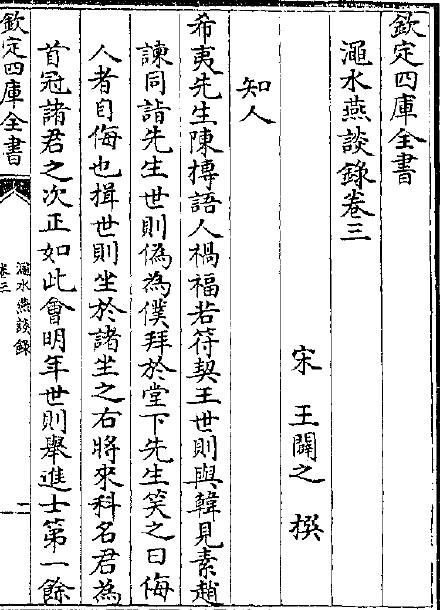 欽定四庫全書
澠水燕談錄卷三
宋 王闢之 撰
知人
希夷先生陳摶語人禍福若符契王世則與韓見素趙
諫同詣先生世則偽為僕拜於堂下先生笑之曰侮
人者自侮也揖世則坐於諸坐之右將來科名君為
首冠諸君之次正如此會明年世則舉進士第一餘
欽定四庫全書
澠水燕談錄
卷三
一